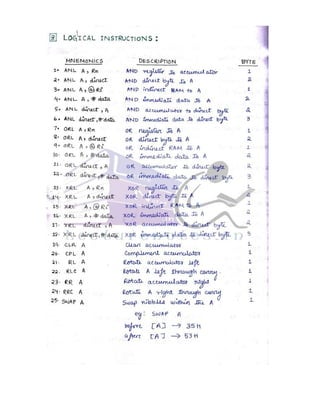 2] LOGICAL INSTRUCTIONS :
MNEMONICS DESCRIPTION BYTE
1. ANL A, Rn AND register to accumulator 1
2. ANL A, direct AND direct byte to A 2
3. ANL A, @Ri AND indirect RAM to A 1
4. ANL A, # data AND immediate data to A 2
5. ANL direct, A AND accumulator to direct byte 2
6. ANL direct, #data AND immediate data to direct byte 3
7. ORL A, Rn OR register to A 1
8. ORL A, direct OR direct byte to A 2
9. ORL A, @Ri OR indirect RAM to A 1
10. ORL A, #data OR immediate data to A 2
11. ORL direct, A OR accumulator to direct byte 2
12. ORL direct, # data OR immediate data to direct byte 3
13. XRL A, Rn XOR register to A 1
14. XRL A, direct XOR direct byte to A 2
15. XRL A, @Ri XOR indirect RAM to A 1
16. XRL A, # data XOR immediate data to A 2
17. XRL direct, A XOR accumulator to direct byte 2
18. XRL direct, # data XOR immediate data to direct byte 3
CLR A Clear accumulator 1
CPL A Complement accumulator 1
21. RL A Rotate accumulator left 1
22. RLC A Rotate A left through carry. 1
23. RR A Rotate accumulator right 1
24. RRC A Rotate A right through carry 1
25. SWAP A Swap nibbles within the A 1
eg: SWAP A
before [A] → 35H
after [A] → 53H